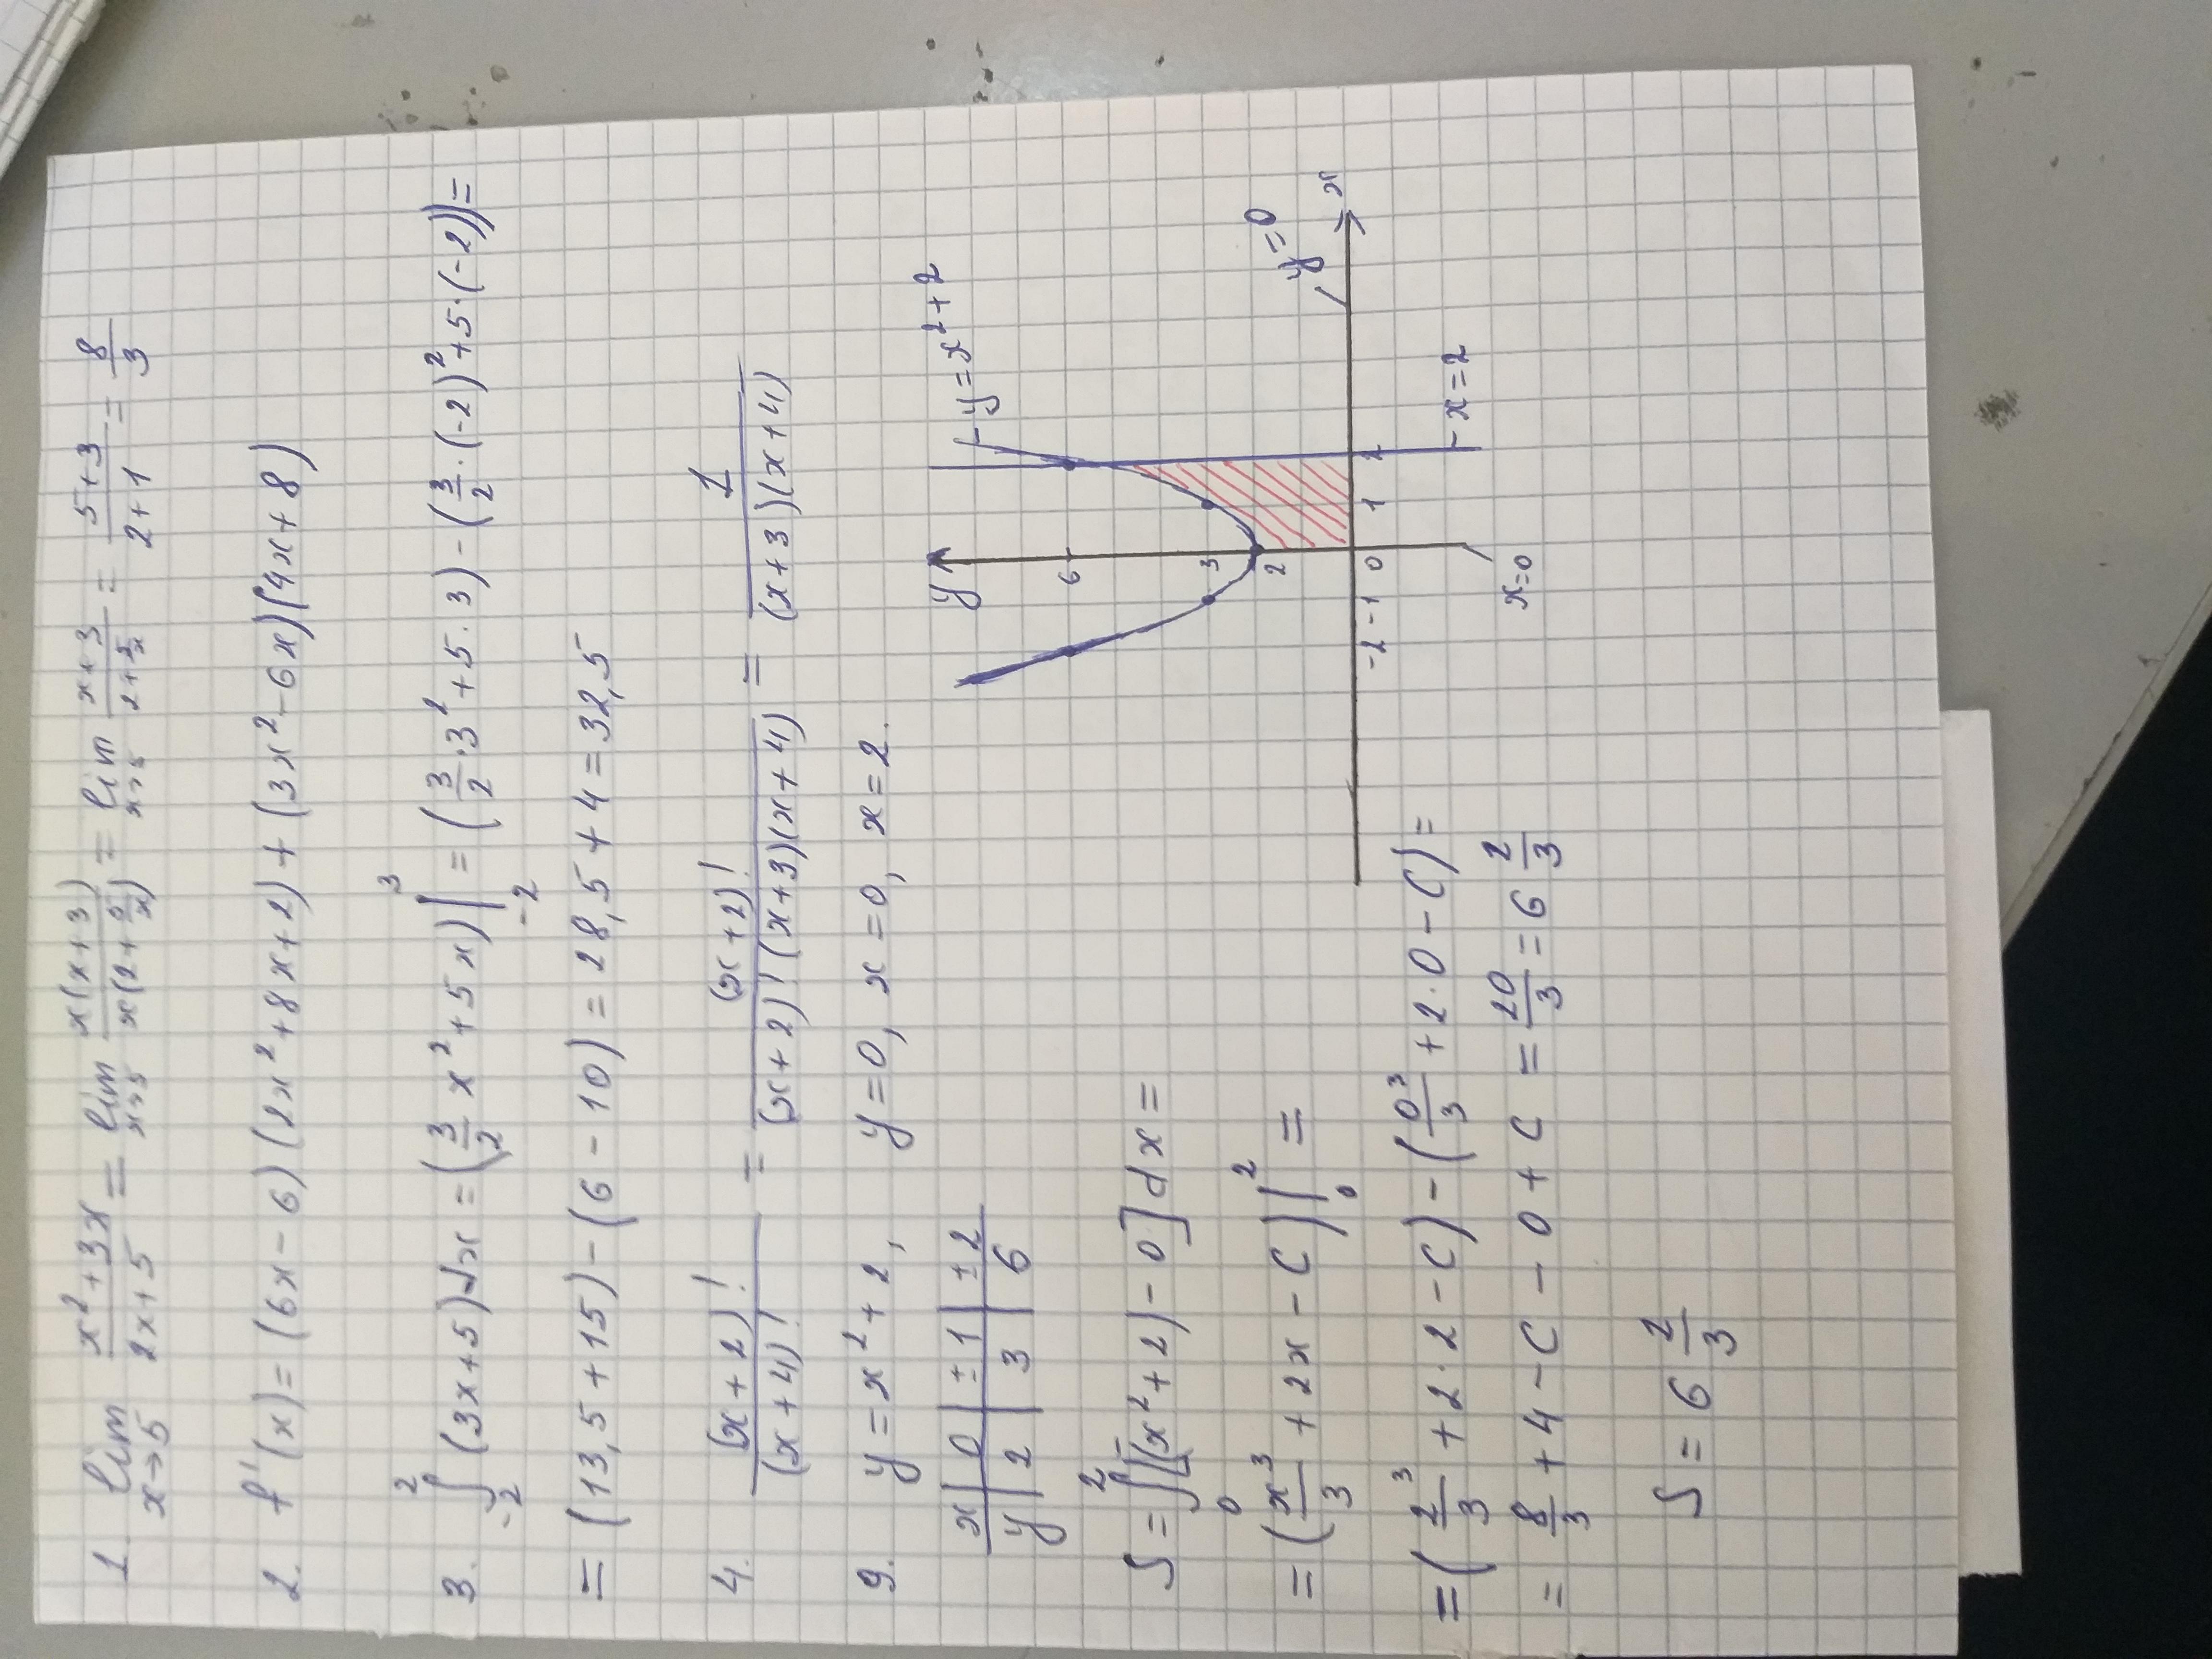 1. lim x→5 (x²+3x)/(2x+5) = lim x→5 x(x+3)/x(2+5/x) = lim x→5 (x+3)/(2+5/x) = (5+3)/(2+1) = 8/3
2. f'(x) = (6x-6)(2x²+8x+2) + (3x²-6x)(4x+8)
3. ∫₋₂² (3x+5)dx = (3/2 x²+5x)|₋₂³ = (3/2·3²+5·3) - (3/2·(-2)²+5·(-2)) =
= (13,5+15) - (6-10) = 28,5+4 = 32,5
4. (x+2)!/(x+4)! = (x+2)!/(x+2)!(x+3)(x+4) = 1/(x+3)(x+4)
9. y = x²+2, y=0, x=0, x=2.
x | 0 | ±1 | ±2
y | 2 | 3 | 6
y
y=x²+2
6
3
2
y=0
x
-2 -1 0 1 2
x=0
x=2
S = ∫₀² [(x²+2)-0]dx =
= (x³/3 + 2x - C)|₀² =
= (2³/3 + 2·2 - C) - (0³/3 + 2·0 - C) =
= 8/3 + 4 - C - 0 + C = 20/3 = 6 2/3
S = 6 2/3